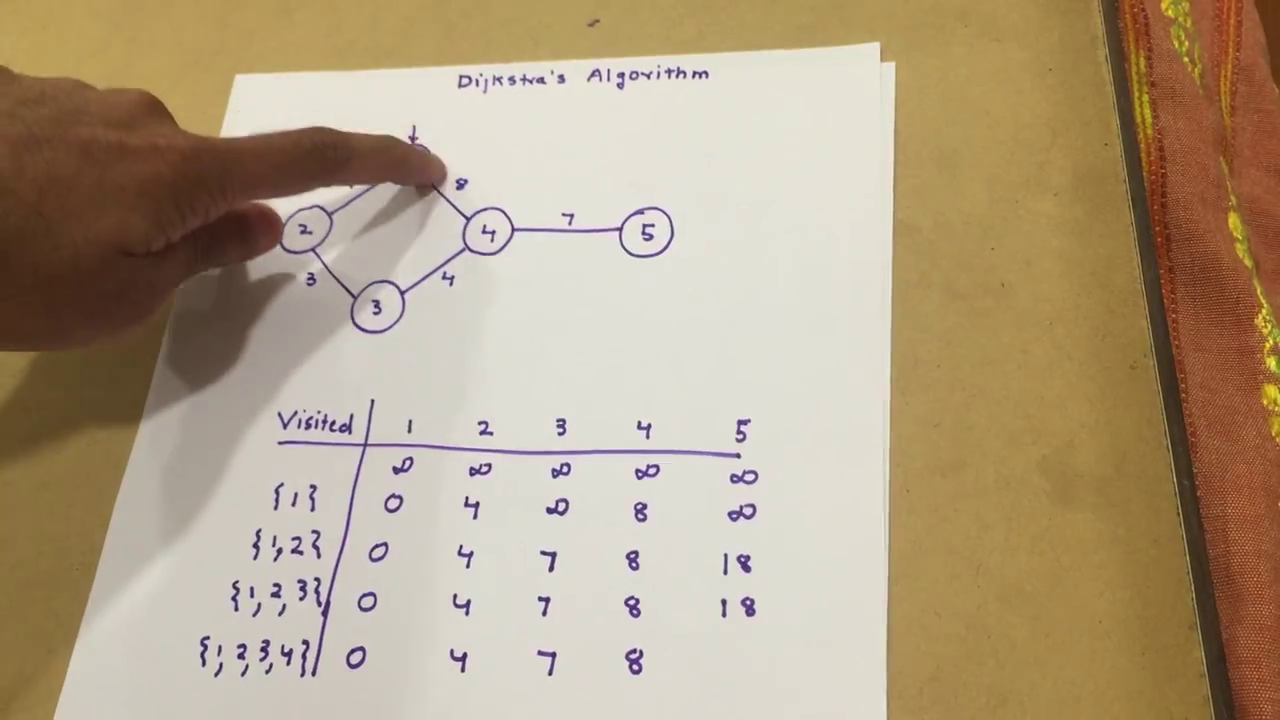 Dijkstra's Algorithm
8
2 4 7 5
3 4
3
Visited 1 2 3 4 5
∞ ∞ ∞ ∞ ∞
{1} 0 4 ∞ 8 ∞
{1,2} 0 4 7 8 18
{1,2,3} 0 4 7 8 18
{1,2,3,4} 0 4 7 8